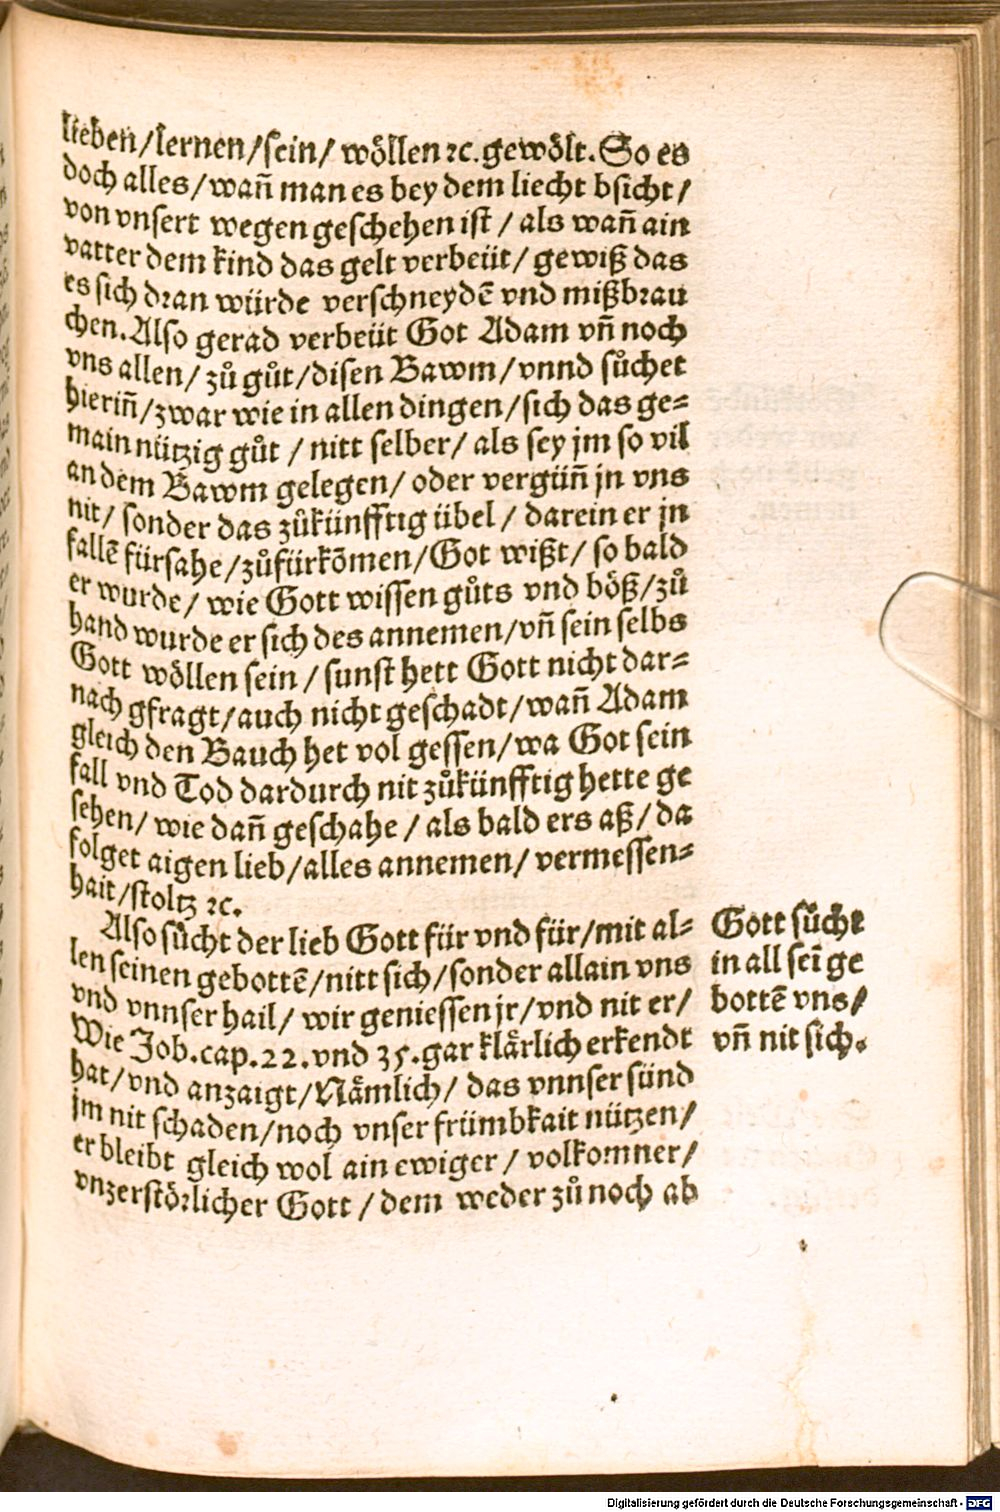 lieben/lernen/sein/ wöllen ꝛc. gewölt. So es
doch alles/ wañ man es bey dem liecht bsicht/
von vnsert wegen geschehen ist / als wañ ain
vatter dem kind das gelt verbeüt/ gewiß das
es sich dran würde verschneydē vnd mißbrau
chen. Also gerad verbeüt Got Adam vñ noch
vns allen/ zů gůt/disen Bawm/ vnnd sůchet
hieriñ/ zwar wie in allen dingen/ sich das ge⸗
main nützig gůt / nitt selber/ als sey jm so vil
an dem Bawm gelegen/ oder vergüñ jn vns
nit/ sonder das zůkünfftig übel / darein er jn
fallē fürsahe/ zůfürkōmen/ Got wißt/ so bald
er wurde/ wie Gott wissen gůts vnd böß/ zů
hand wurde er sich des annemen/ vñ sein selbs
Gott wöllen sein / sunst hett Gott nicht dar⸗
nach gfragt/ auch nicht geschadt/ wañ Adam
gleich den Bauch het vol gessen/ wa Got sein
fall vnd Tod dardurch nit zůkünfftig hette ge
sehen/ wie dañ geschahe / als bald ers aß/ da
folget aigen lieb/ alles annemen/ vermessen⸗
hait/ stoltz ꝛc.
Also sůcht der lieb Gott für vnd für/ mit al⸗
len seinen gebottē/ nitt sich/ sonder allain vns
vnd vnnser hail/ wir geniessen jr/ vnd nit er/
Wie Job. cap. 22. vnd 35. gar klårlich erkendt
hat/ vnd anzaigt/ Nåmlich/ das vnnser sünd
jm nit schaden/ noch vnser frümbkait nützen/
er bleibt gleich wol ain ewiger / volkomner/
vnzerstörlicher Gott / dem weder zů noch ab
Gott sůcht
in all seī ge
bottē vns/
vñ nit sich.
Digitalisierung gefördert durch die Deutsche Forschungsgemeinschaft - DFG